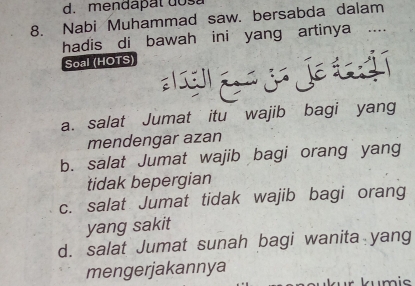 d. mendapat dosa
8. Nabi Muhammad saw. bersabda dalam
hadis di bawah ini yang artinya ....
Soal (HOTS)
اَلْجُمُعَةُ عَلَى مَنْ سَمِعَ النِّدَاءَ
a. salat Jumat itu wajib bagi yang
mendengar azan
b. salat Jumat wajib bagi orang yang
tidak bepergian
c. salat Jumat tidak wajib bagi orang
yang sakit
d. salat Jumat sunah bagi wanita yang
mengerjakannya
kumis